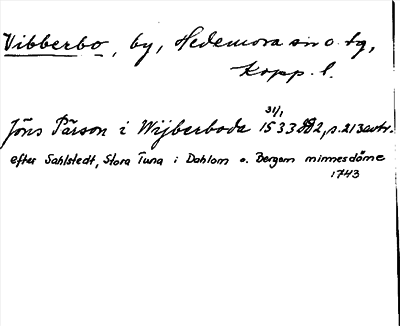 Vibberbo, by, Hedemora sn o. tg,
Kopp. l.
31/1
Jöns Pärson i Wijberboda 1533 DD2, s. 213 avtr.
efter Sahlstedt, Stora Tuna i Dahlom o. Bergom minnesdöme
1743